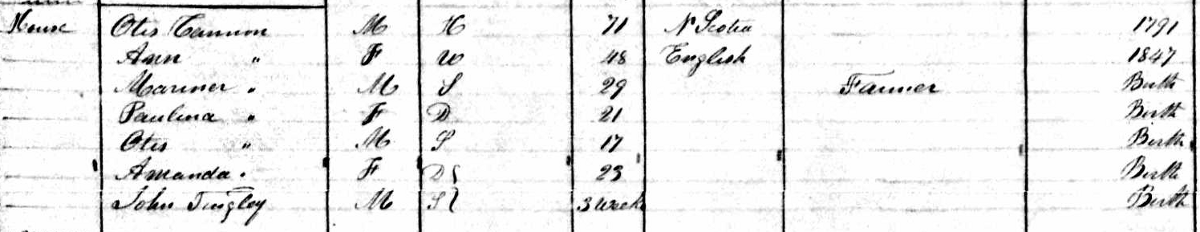 House Otis Cannon M H 71 N Scotia 1791
Ann " F W 48 English 1847
Mariner " M S 29 Farmer Birth
Paulina " F D 21 Birth
Otis " M S 17 Birth
Amanda " F D 23 Birth
John Tingley M S 3 Week Birth